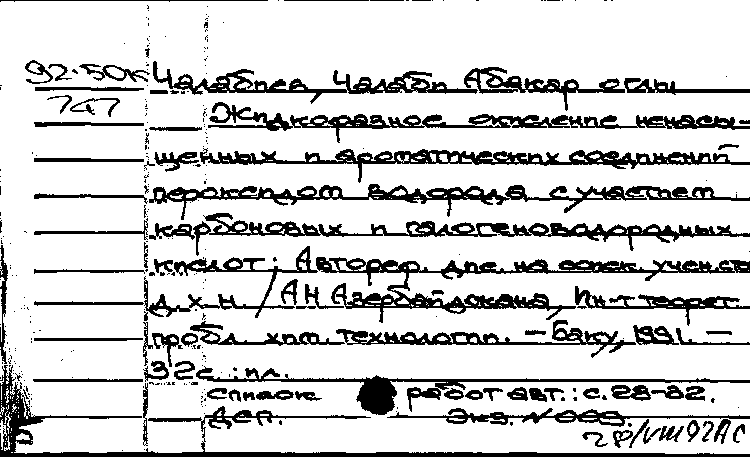 92-50К Чалабиев, Чалаби Абакар оглы
747 Жидкофазное окисление ненасы-
щенных и ароматических соединений
пероксидом водорода с участием
карбоновых и галогеноводородных
кислот: Автореф. дис. на соиск. учен. ст.
д.х.н. / АН Азербайджана, Ин-т теорет.
пробл. хим. технологии. — Баку, 1991. —
32с.: ил.
Список работ авт.: с. 28-32.
ДСП. Экз. N 009.
28/VIII 92 АС